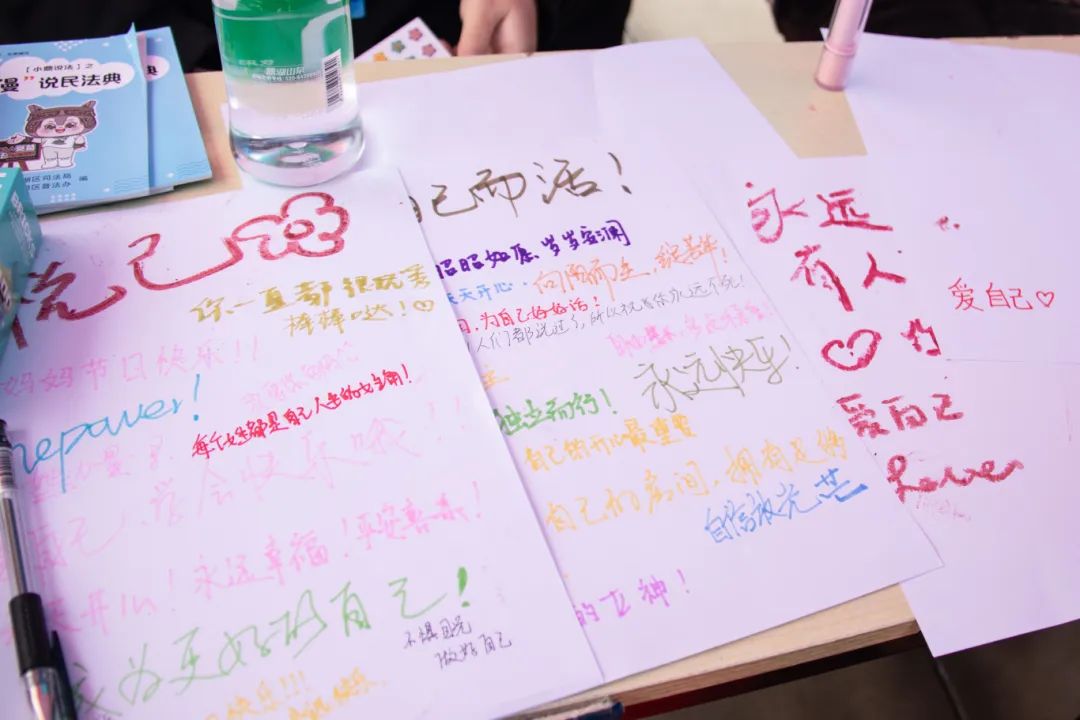 【小鹿说法】之
”说民法典
区司法局
区普法办 编
悦己
你一直都很优秀
棒棒哒！
妈妈节日快乐！！
hepower！
每个女生都是自己人生的女主角！
学会快乐哦！！
永远幸福！平安喜乐！
天天开心！
成为更好的自己！
不惧目光
做好自己
快乐！！！
己而活！
昭昭如愿、岁岁安澜
天天开心
向阳而生
为自己好好活！
人们都说过了，所以祝你永远不死！
永远快乐！
独立而行！
自己的开心最重要
有自己的房间，拥有足够
自信放光芒
的女神！
永远
有人
的
爱自己
Lover
爱自己